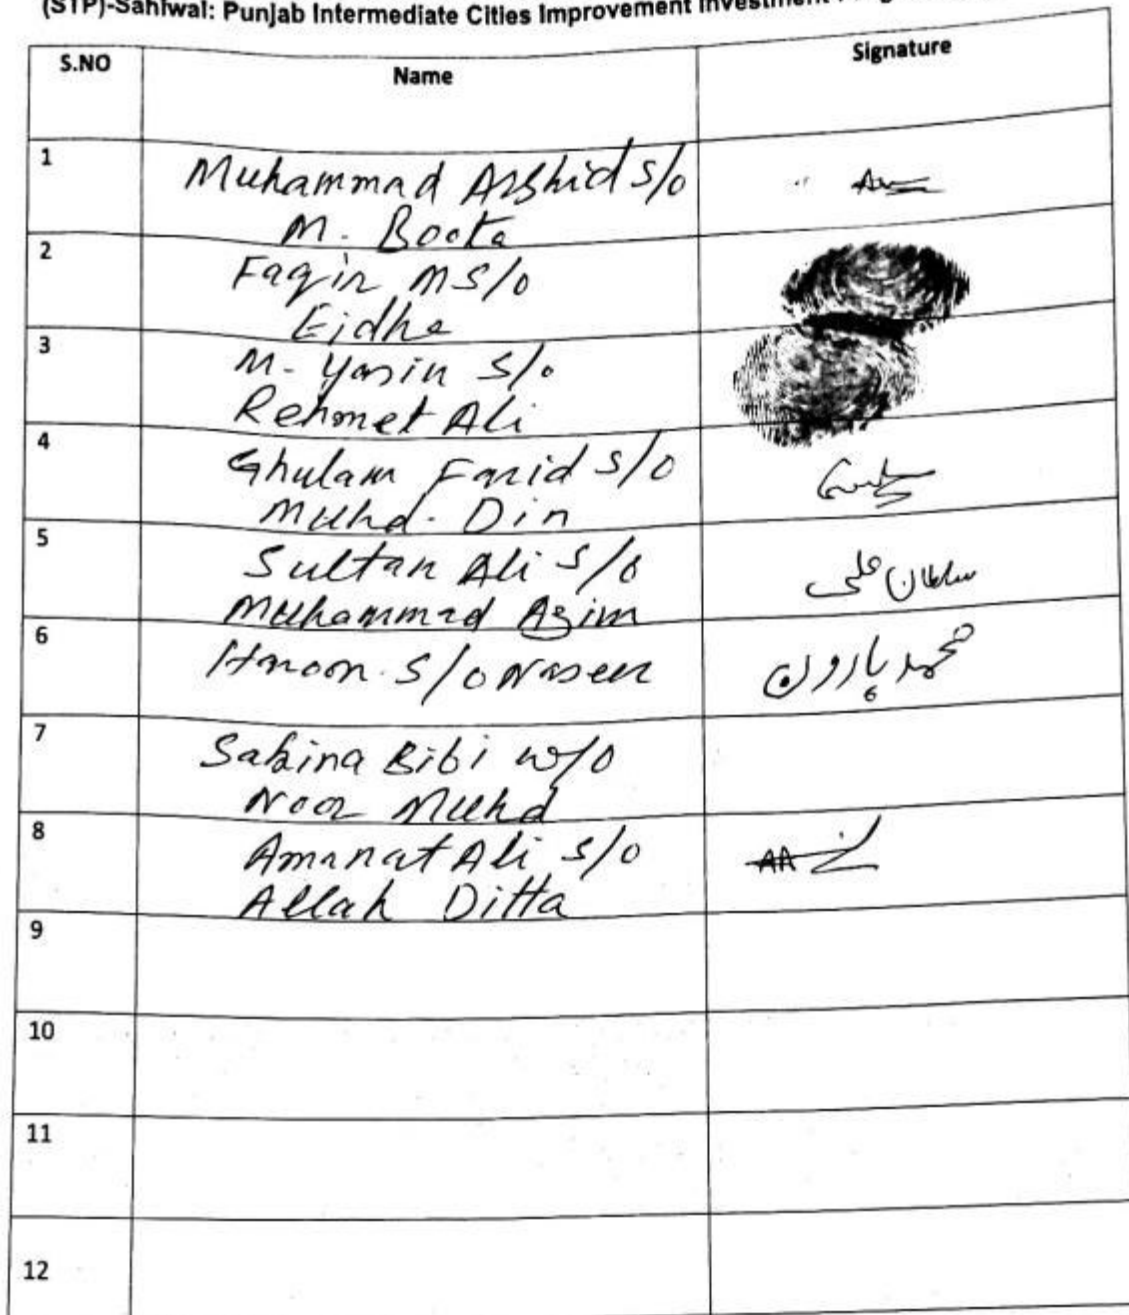 (STP)-Sahiwal: Punjab Intermediate Cities Improvement Investment
S.NO Name Signature
1 Muhammad Arshid S/o
M. Boota
2 Faqir M S/o
Eidha
3 M. Yasin S/o
Rehmet Ali
4 Ghulam Farid S/o
Muhd. Din
5 Sultan Ali S/o سلطان علی
Muhammad Azim
6 Haroon S/o Naseer محمد ہارون
7 Sakina Bibi w/o
Noor Muhd
8 Amanat Ali S/o AA
Allah Ditta
9
10
11
12